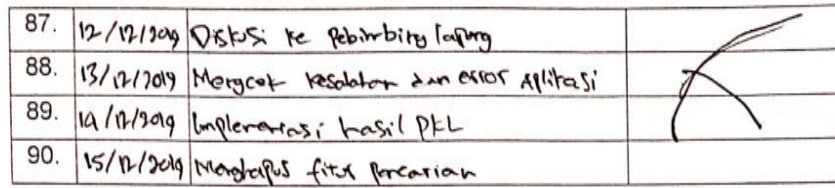 87. 12/12/2019 Diskusi ke Pebimbing lapang
88. 13/12/2019 Mengcek kesalahan dan error Aplikasi
89. 14/12/2019 Implementasi hasil PKL
90. 15/12/2019 Menghapus fitur pencarian